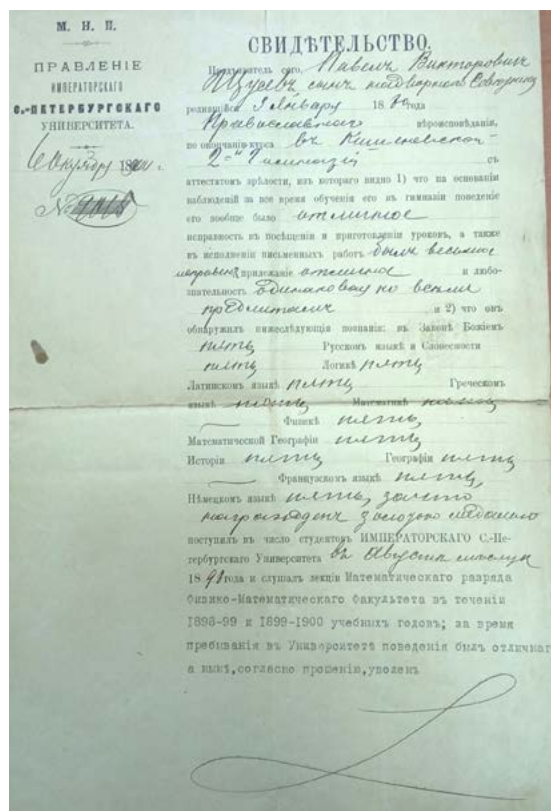 М. Н. П.
ПРАВЛЕНІЕ
ИМПЕРАТОРСКАГО
С.-ПЕТЕРБУРГСКАГО
УНИВЕРСИТЕТА.
СВИДѢТЕЛЬСТВО.
Предъявитель сего, Павелъ Викторовичъ
Щусевъ сынъ надворнаго Совѣтника
родившійся 9 Января 18 года
Православнаго вѣроисповѣданія,
по окончаніи курса въ Кишиневской
2-ой Гимназіи съ
аттестатомъ зрѣлости, изъ котораго видно 1) что на основаніи
наблюденій за все время обученія его въ гимназіи поведеніе
его вообще было отличное
исправность въ посѣщеніи и приготовленіи уроковъ, а также
въ исполненіи письменныхъ работъ былъ весьма
исправенъ прилежаніе отличное и любо-
знательность одинаковая ко всѣмъ
предметамъ и 2) что онъ
обнаружилъ нижеслѣдующія познанія: въ Законѣ Божіемъ
пять Русскомъ языкѣ и Словесности
пять Логикѣ пять
Латинскомъ языкѣ пять Греческомъ
языкѣ пять Математикѣ пять
Физикѣ пять
Математической Географіи пять
Исторіи пять Географіи пять
Французскомъ языкѣ пять
Нѣмецкомъ языкѣ пять, за что
награжденъ золотою медалью
поступилъ въ число студентовъ ИМПЕРАТОРСКАГО С.-Пе-
тербургскаго Университета въ Августѣ мѣсяцѣ
1898 года и слушалъ лекціи Математическаго разряда
Физико-Математическаго Факультета въ теченіи
1898-99 и 1899-1900 учебныхъ годовъ; за время
пребыванія въ Университетѣ поведенія былъ отличнаг
а нынѣ, согласно прошенію, уволенъ